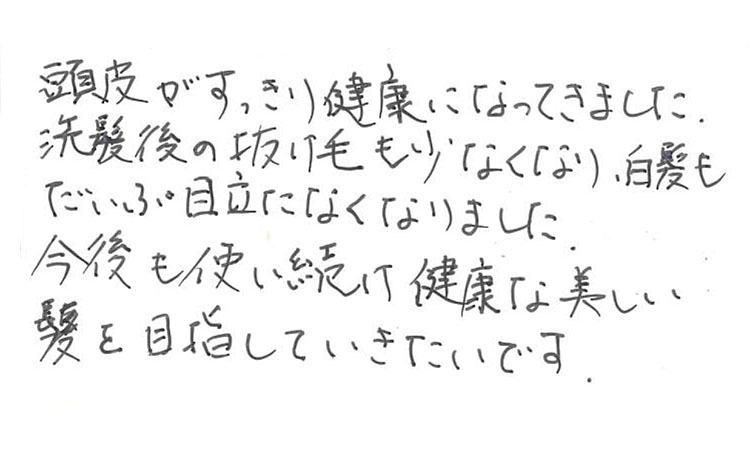 頭皮がすっきり健康になってきました.
洗髪後の抜け毛も少なくなり、白髪も
だいぶ目立たなくなりました.
今後も使い続け健康な美しい
髪を目指していきたいです.